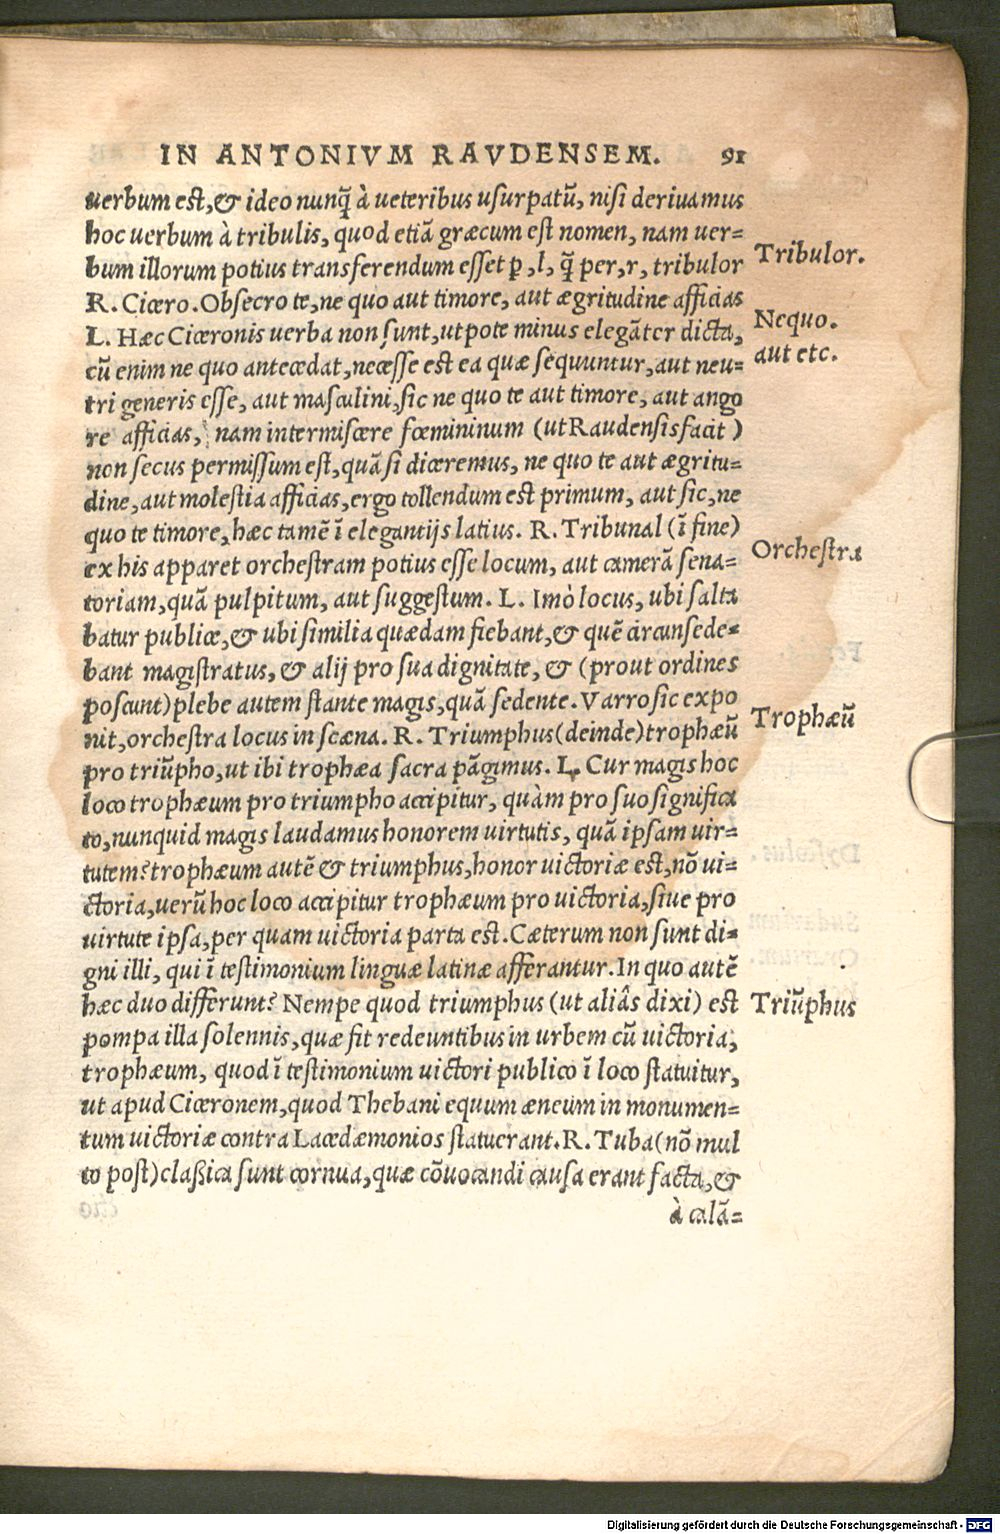 IN ANTONIVM RAVDENSEM. 91
uerbum est, & ideo nunq̃ à ueteribus usurpatũ, nisi deriuamus
hoc uerbum à tribulis, quod etiã græcum est nomen, nam uer=
bum illorum potius transferendum esset p̱, l, q̃ per, r, tribulor
Tribulor.
R. Cicero. Obsecro te, ne quo aut timore, aut ægritudine afficias
Nequo.
L. Hæc Ciceronis uerba non sunt, utpote minus elegãter dicta,
aut etc.
cũ enim ne quo antecedat, necesse est ea quæ sequuntur, aut neu=
tri generis esse, aut masculini, sic ne quo te aut timore, aut ango
re afficias, nam intermiscere fœmininum (ut Raudensis facit)
non secus permissum est, quã si diceremus, ne quo te aut ægritu=
dine, aut molestia afficias, ergo tollendum est primum, aut sic, ne
quo te timore, hæc tamẽ ĩ elegantijs latius. R. Tribunal (ĩ fine)
ex his apparet orchestram potius esse locum, aut camerã sena=
Orchestra
toriam, quã pulpitum, aut suggestum. L. Imò locus, ubi salta
batur publice, & ubi similia quædam fiebant, & quẽ circunsede=
bant magistratus, & alij pro sua dignitate, & (prout ordines
poscunt) plebe autem stante magis, quã sedente. Varro sic expo
nit, orchestra locus in scæna. R. Triumphus (deinde) trophæũ
Trophæũ
pro triũpho, ut ibi trophæa sacra pãgimus. L. Cur magis hoc
loco trophæum pro triumpho accipitur, quàm pro suo significa
to, nunquid magis laudamus honorem uirtutis, quã ipsam uir=
tutem? trophæum autẽ & triumphus, honor uictoriæ est, nõ ui=
ctoria, uerũ hoc loco accipitur trophæum pro uictoria, siue pro
uirtute ipsa, per quam uictoria parta est. Cæterum non sunt di=
gni illi, qui ĩ testimonium linguæ latinæ afferantur. In quo autẽ
hæc duo differunt? Nempe quod triumphus (ut aliâs dixi) est
Triũphus
pompa illa solennis, quæ fit redeuntibus in urbem cũ uictoria;
trophæum, quod ĩ testimonium uictori publico ĩ loco statuitur,
ut apud Ciceronem, quod Thebani equum æneum in monumen=
tum uictoriæ contra Lacedæmonios statuerant. R. Tuba (nõ mul
to post) claßica sunt cornua, quæ cõuocandi causa erant facta, &
à calã=
Digitalisierung gefördert durch die Deutsche Forschungsgemeinschaft - DFG